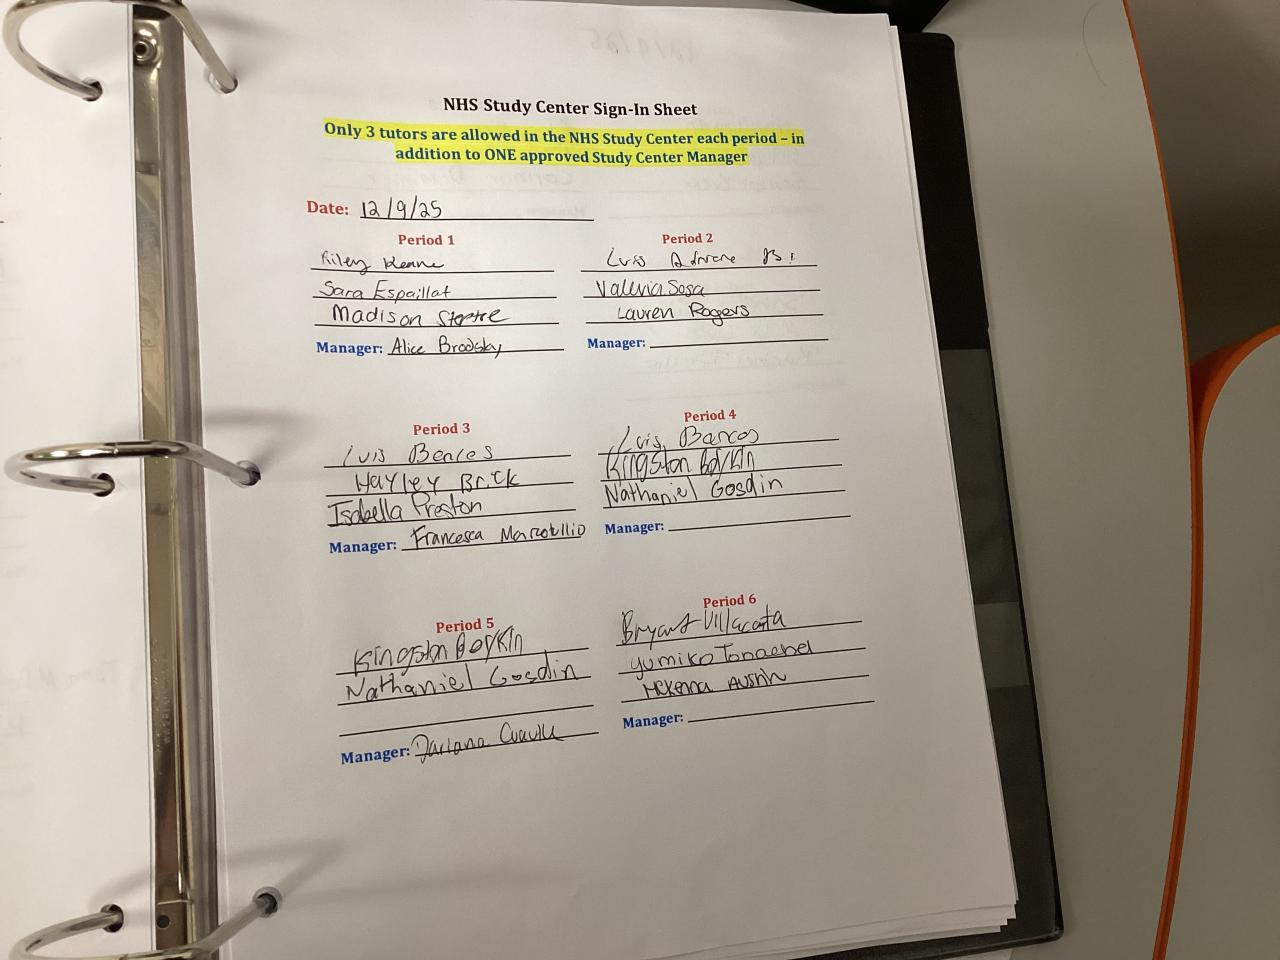 NHS Study Center Sign-In Sheet
Only 3 tutors are allowed in the NHS Study Center each period – in
addition to ONE approved Study Center Manager
Date: 12/9/25
Period 1
Riley Keane
Sara Espaillat
Madison
Manager: Alice Brodsky
Period 2
Luis B.
Valeria Sosa
Lauren Rogers
Manager:
Period 3
Luis
Hayley Brick
Isabella Preston
Manager: Francesca
Period 4
Luis Barcos
Kingston
Nathaniel Gosdin
Manager:
Period 5
Kingston
Nathaniel Gosdin
Manager: Dariana
Period 6
Bryant
Yumiko
McKenna Austin
Manager: